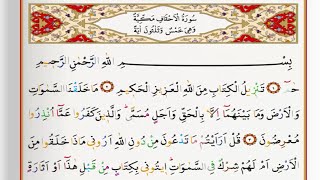 سُورَةُ الْاَحْقَافِ مَكِّيَّةٌ
وَهِىَ خَمْسٌ وَثَلٰثُونَ اٰيَةً
بِسْــــــمِ اللّٰهِ الرَّحْمٰنِ الرَّحٖيمِ
حٰمٓ ۚ ١ تَنْزٖيلُ الْكِتَابِ مِنَ اللّٰهِ الْعَزٖيزِ الْحَكٖيمِ ٢ مَا خَلَقْنَا السَّمٰوَاتِ
وَالْاَرْضَ وَمَا بَيْنَهُمَٓا اِلَّا بِالْحَقِّ وَاَجَلٍ مُسَمًّىؕ وَالَّذٖينَ كَفَرُوا عَمَّٓا اُنْذِرُوا
مُعْرِضُونَ ٣ قُلْ اَرَاَيْتُمْ مَا تَدْعُونَ مِنْ دُونِ اللّٰهِ اَرُونٖى مَاذَا خَلَقُوا مِنَ
الْاَرْضِ اَمْ لَهُمْ شِرْكٌ فِى السَّمٰوَاتِؕ اٖيتُونٖى بِكِتَابٍ مِنْ قَبْلِ هٰذَٓا اَوْ اَثَارَةٍ